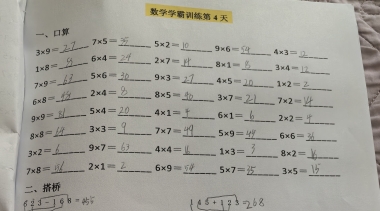 数学学霸训练第 4 天
一、口算
3×9= 27 7×5= 35 5×2= 10 9×6= 54 4×3= 12
1×8= 8 6×4= 24 2×7= 14 8×1= 8 3×4= 12
7×9= 63 5×6= 30 9×3= 27 4×5= 20 1×2= 2
6×8= 48 2×4= 8 8×5= 30 3×7= 21 7×2= 14
9×9= 81 5×4= 20 4×1= 4 6×1= 6 2×2= 4
8×8= 64 3×3= 9 7×7= 49 5×9= 45 6×6= 36
3×2= 6 9×7= 63 4×4= 16 1×3= 3 8×2= 16
7×8= 2×1= 2 6×9= 54 5×7= 35 3×5= 15
二、搭桥